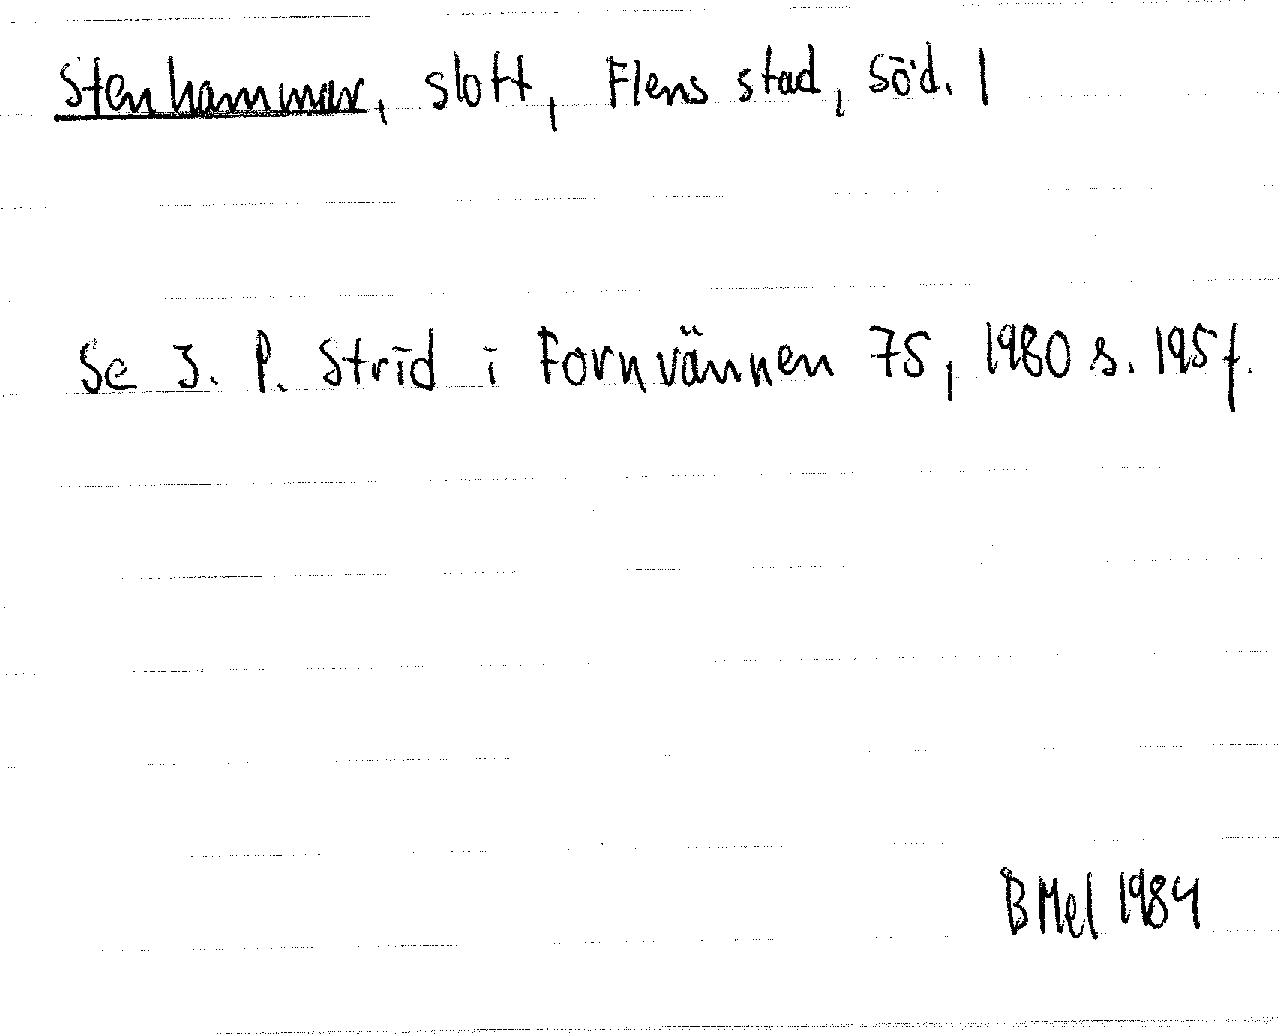 Stenhammar, slott, Flens stad, Söd. l
Se J. P. Strid i Fornvännen 75, 1980 s. 195 f.
B Mel 1984